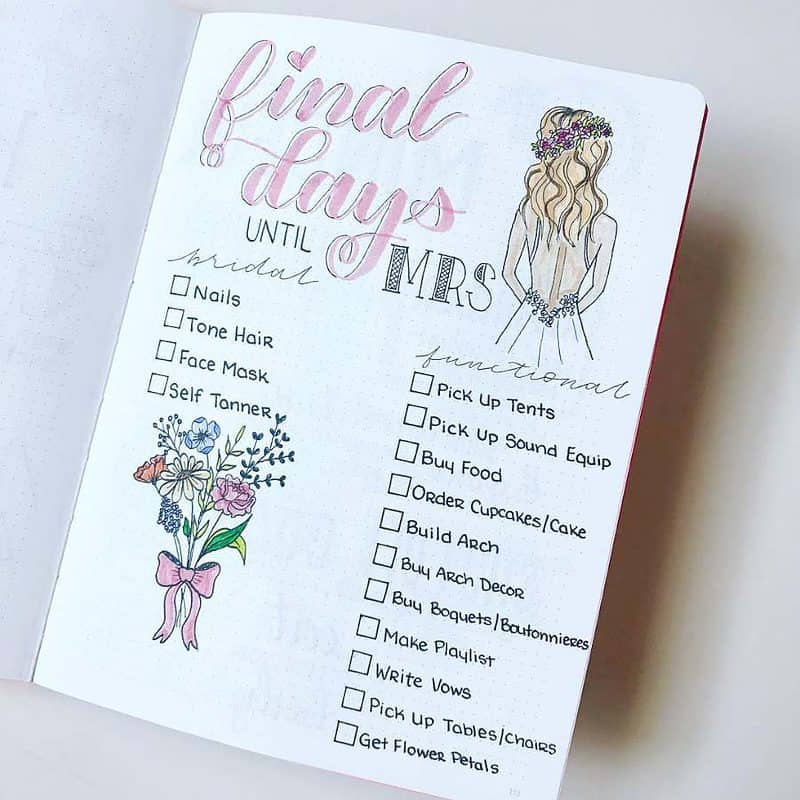 final
days
UNTIL
MRS
bridal
Nails
Tone Hair
Face Mask
Self Tanner
functional
Pick Up Tents
Pick Up Sound Equip
Buy Food
Order Cupcakes/Cake
Build Arch
Buy Arch Decor
Buy Boquets/Boutonnieres
Make Playlist
Write Vows
Pick Up Tables/Chairs
Get Flower Petals